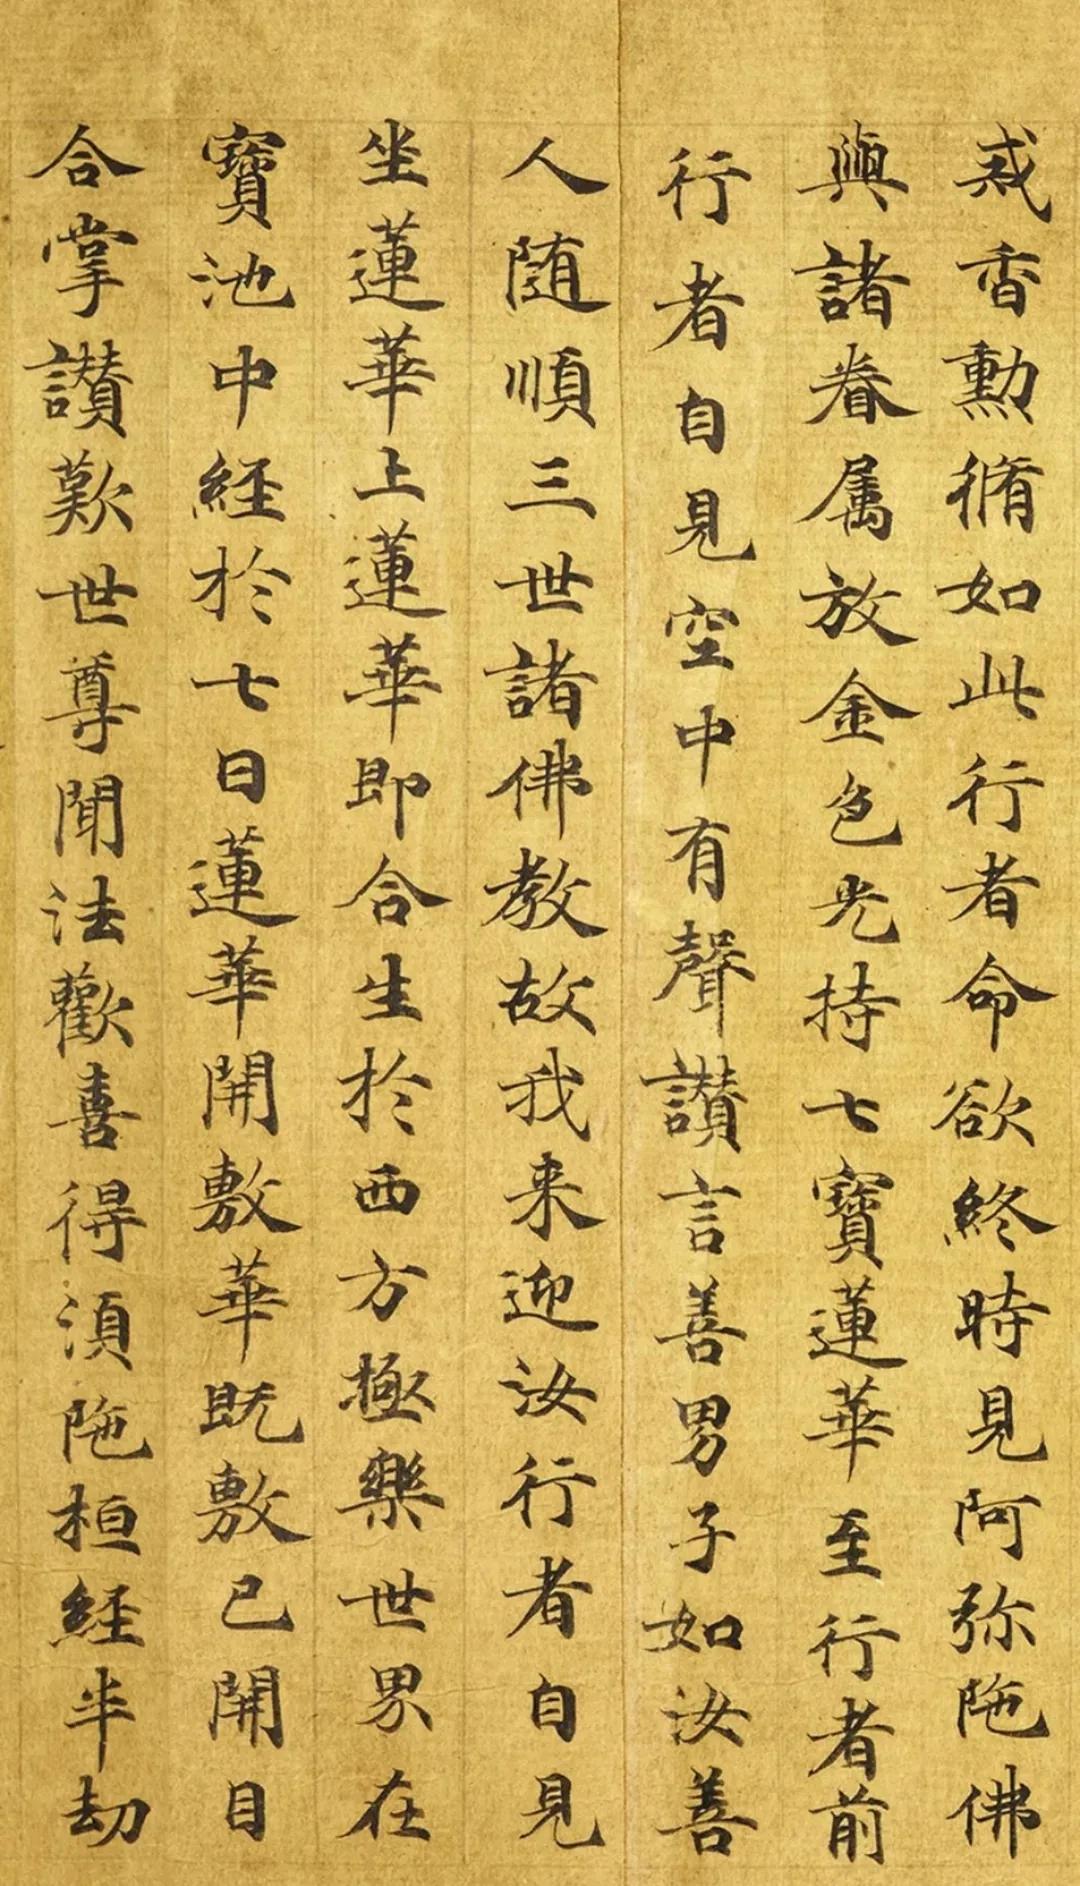 戒香勳脩如此行者命欲終時見阿弥陁佛
與諸眷属放金色光持七寶蓮華至行者前
行者自見空中有聲讚言善男子如汝善
人随順三世諸佛教故我来迎汝行者自見
坐蓮華上蓮華即合生於西方極樂世界在
寶池中経於七日蓮華開敷華既敷已開目
合掌讃歎世尊聞法歡喜得湏陁桓経半劫